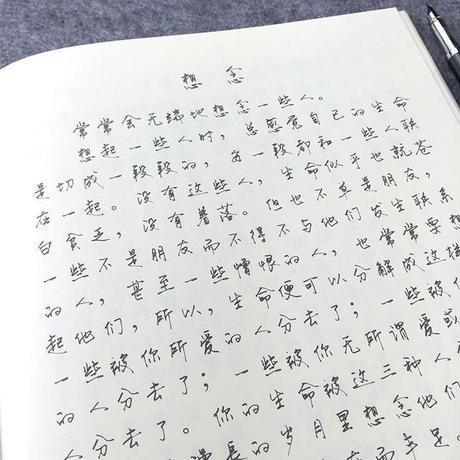 想念
常常会无端地想念一些人。
想起一些人时，总感觉自己的生命
是切成一段段的，每一段都和一些人联
在一起。没有这些人，生命似乎也就苍
白贫乏，没有着落。但也不单是朋友，
一些不是朋友而不得不与他们发生联系
的人，甚至一些憎恨的人，也常常要想
起他们，所以，生命便可以分解成这样
一些被你所爱的人分去了；一些被
的人分去了；一些被你无所谓爱或
人分去了。你的生命被这三种人
漫长的岁月里想念他们